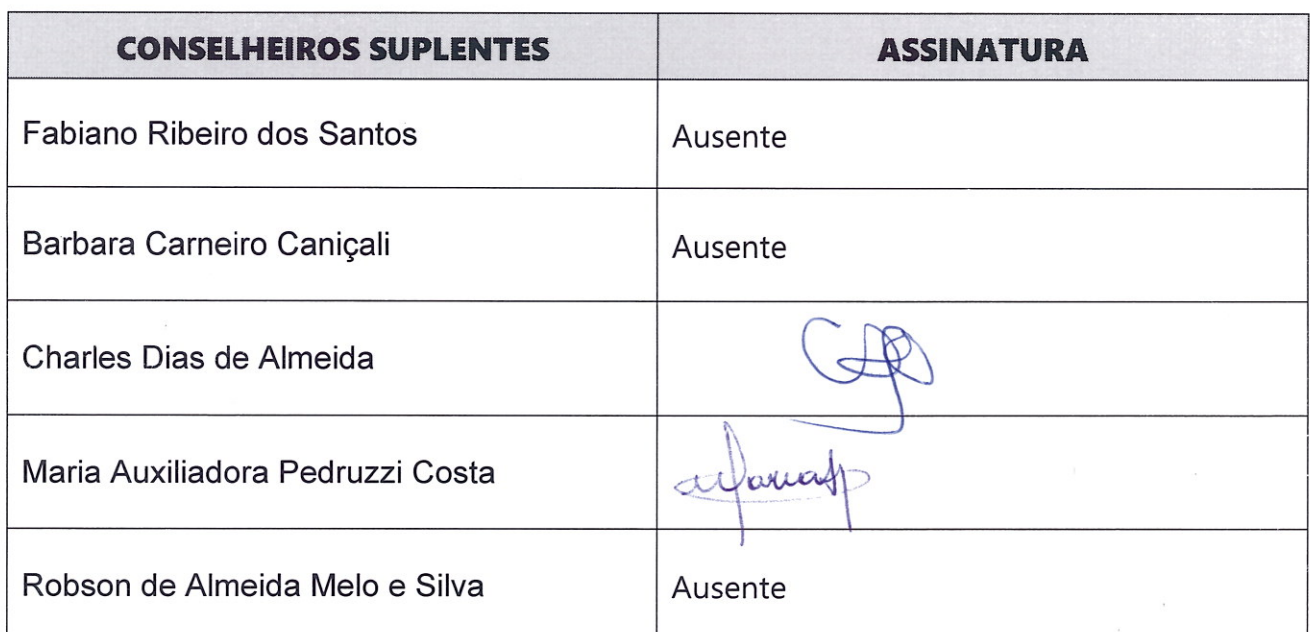 CONSELHEIROS SUPLENTES ASSINATURA
Fabiano Ribeiro dos Santos Ausente
Barbara Carneiro Caniçali Ausente
Charles Dias de Almeida
Maria Auxiliadora Pedruzzi Costa
Robson de Almeida Melo e Silva Ausente